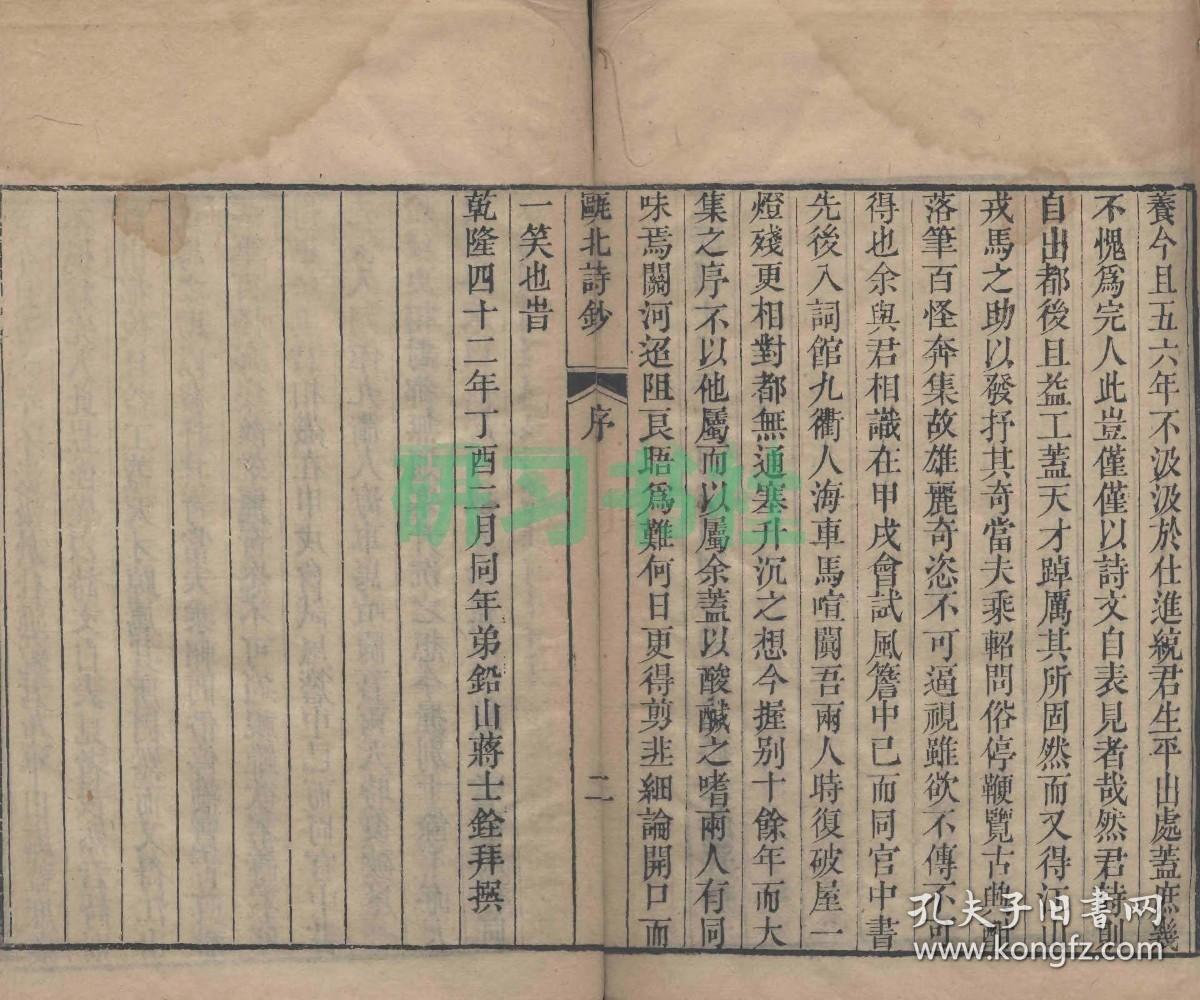 養今且五六年不汲汲於仕進統君生平出處蓋庶幾
不愧爲完人此豈僅僅以詩文自表見者哉然君詩則
自出都後且益工蓋天才踔厲其所固然而又得江山
戎馬之助以發抒其奇當夫乘軺問俗停鞭覽古興酣
落筆百怪奔集故雄麗奇恣不可逼視雖欲不傳不可
得也余與君相識在甲戌會試風簷中已而同官中書
先後入詞館九衢人海車馬喧闐吾兩人時復破屋一
燈殘更相對都無通塞升沉之想今握别十餘年而大
集之序不以他屬而以屬余蓋以酸醎之嗜兩人有同
味焉關河迢阻良晤爲難何日更得剪韭細論開口而
甌北詩鈔 序 二
一笑也昔
乾隆四十二年丁酉二月同年弟鉛山蔣士銓拜撰
研习书社
孔夫子旧书网
www.kongfz.com